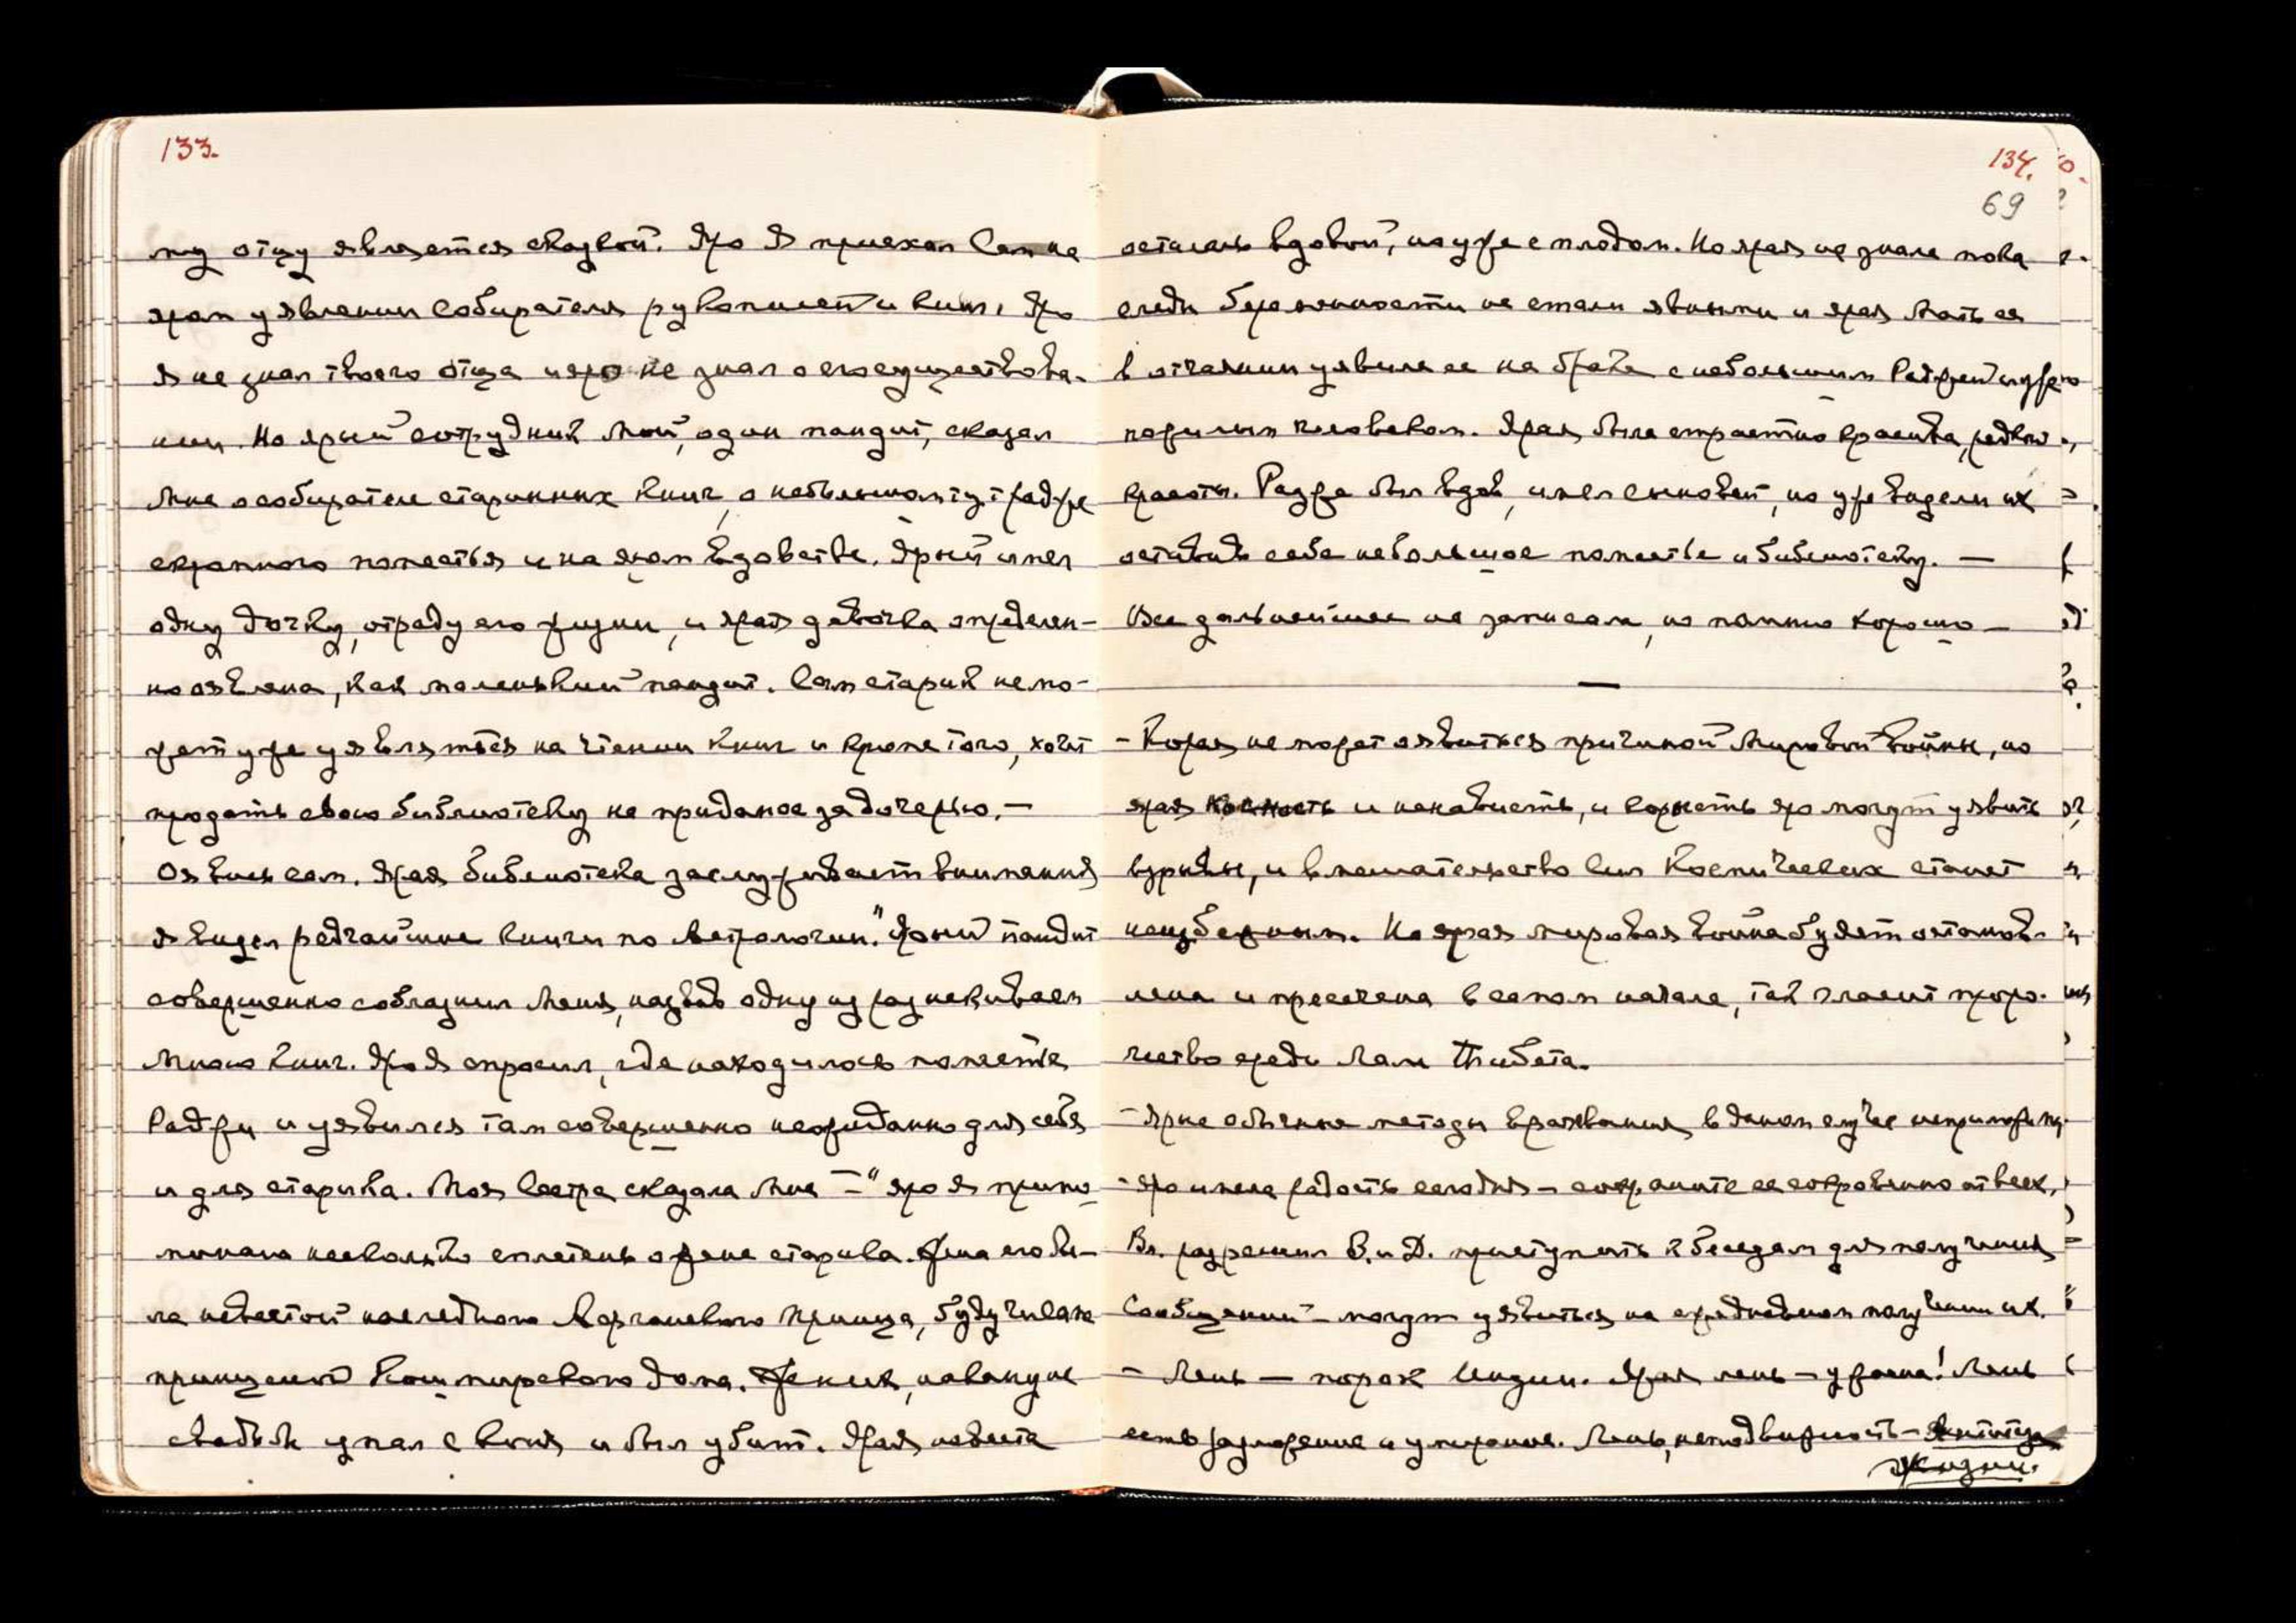 133.
му отцу является сказкой. Яро Я приехал Сам на
яром уявлении собирателя рукописей и книг, Яро
Я не знал твоего отца и яро не знал о его существова-
нии. Но ярый сотрудник мой, один пандит, сказал
Мне о собирателе старинных книг, о небольшом раджре
скромного поместья и на яром вдовстве. Ярый имел
одну дочку, отраду его жизни, и ярая девочка определен-
но явлена, как маленький пандит. Сам старик не мо-
жет уже уявляться на чтении книг и кроме того, хочет
продать свою библиотеку на приданое за дочерью. —
Оявись сам. Ярая библиотека заслуживает внимания
Я видел редчайшие книги по Астрологии." Ярый пандит
совершенно соблазнил Меня, назвав одну из разыскиваем
Мною книг. Яро Я спросил, где находилось поместье
Раджи и уявился там совершенно неожиданно для себя
и для старика. Моя Сестра сказала Мне — "яро я припо
минаю несколько сплетень о жене старика. Жена его бы-
ла невестой наследного Принца, будучи сама
принцессой Кашмирского дома. Жених, накануне
свадьбы упал с коня и был убит. Ярая невеста
134.
69
осталась вдовой, но уже с плодом. Но ярая не знала пока
следы беременности не стали явными и ярая Мать ея
в отчаянии уявила ее на браке с небольшим Раджей и уже
пожилым человеком. Ярая была страстно красива, редкой
красоты. Раджа был вдов, имел сыновей, но уже выделил их
оставив себе небольшое поместье и библиотеку. —
Все дальнейшее не записала, но помню хорошо —
—
- Корея не может оявиться причиной Мировой войны, но
ярая косность и ненависть, и корысть яро могут уявить
взрывы, и вмешательство Сил Космических станет
неизбежным. Но ярая мировая война будет останов-
лена и пресечена в самом начале, так гласит проро-
чество среди Лам Тибета.
- Ярые обычные методы врачевания в данном случае неприложимы.
- Яро имела радость сегодня — сохраните ее сокровенно от всех,
Вл. разрешил В. и Д. приступить к беседам для получения
Сообщений — могут уявиться на ежедневном получении их.
- Лень — порок Индии. Ярая лень — ужасна! Лень
есть разложение и умирание. Лень, неподвижность — Антитеза
Жизни.